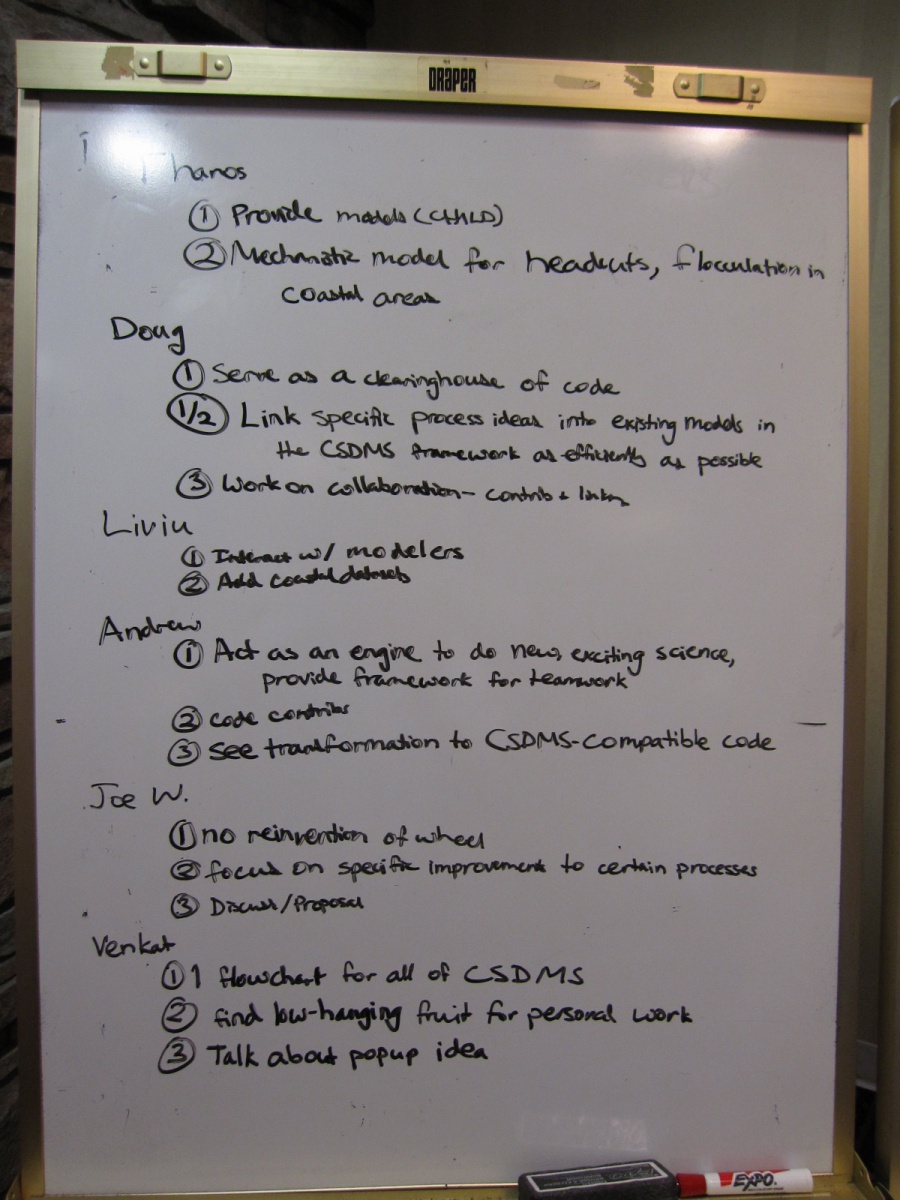 DRAPER
Thanos
① Provide models (CHILD)
② Mechanistic model for headcuts, flocculation in
coastal areas
Doug
① Serve as a clearinghouse of code
1/2 Link specific process ideas into existing models in
the CSDMS framework as efficiently as possible
③ Work on collaboration - contrib +
Liviu
① Interact w/ modelers
② Add coastal datasets
Andrew
① Act as an engine to do new, exciting science,
provide framework for teamwork
② code contribs
③ See transformation to CSDMS-compatible code
Joe W.
① no reinvention of wheel
② focus on specific improvements to certain processes
③ Discuss/Proposal
Venkat
① 1 flowchart for all of CSDMS
② find low-hanging fruit for personal work
③ Talk about popup idea
EXPO